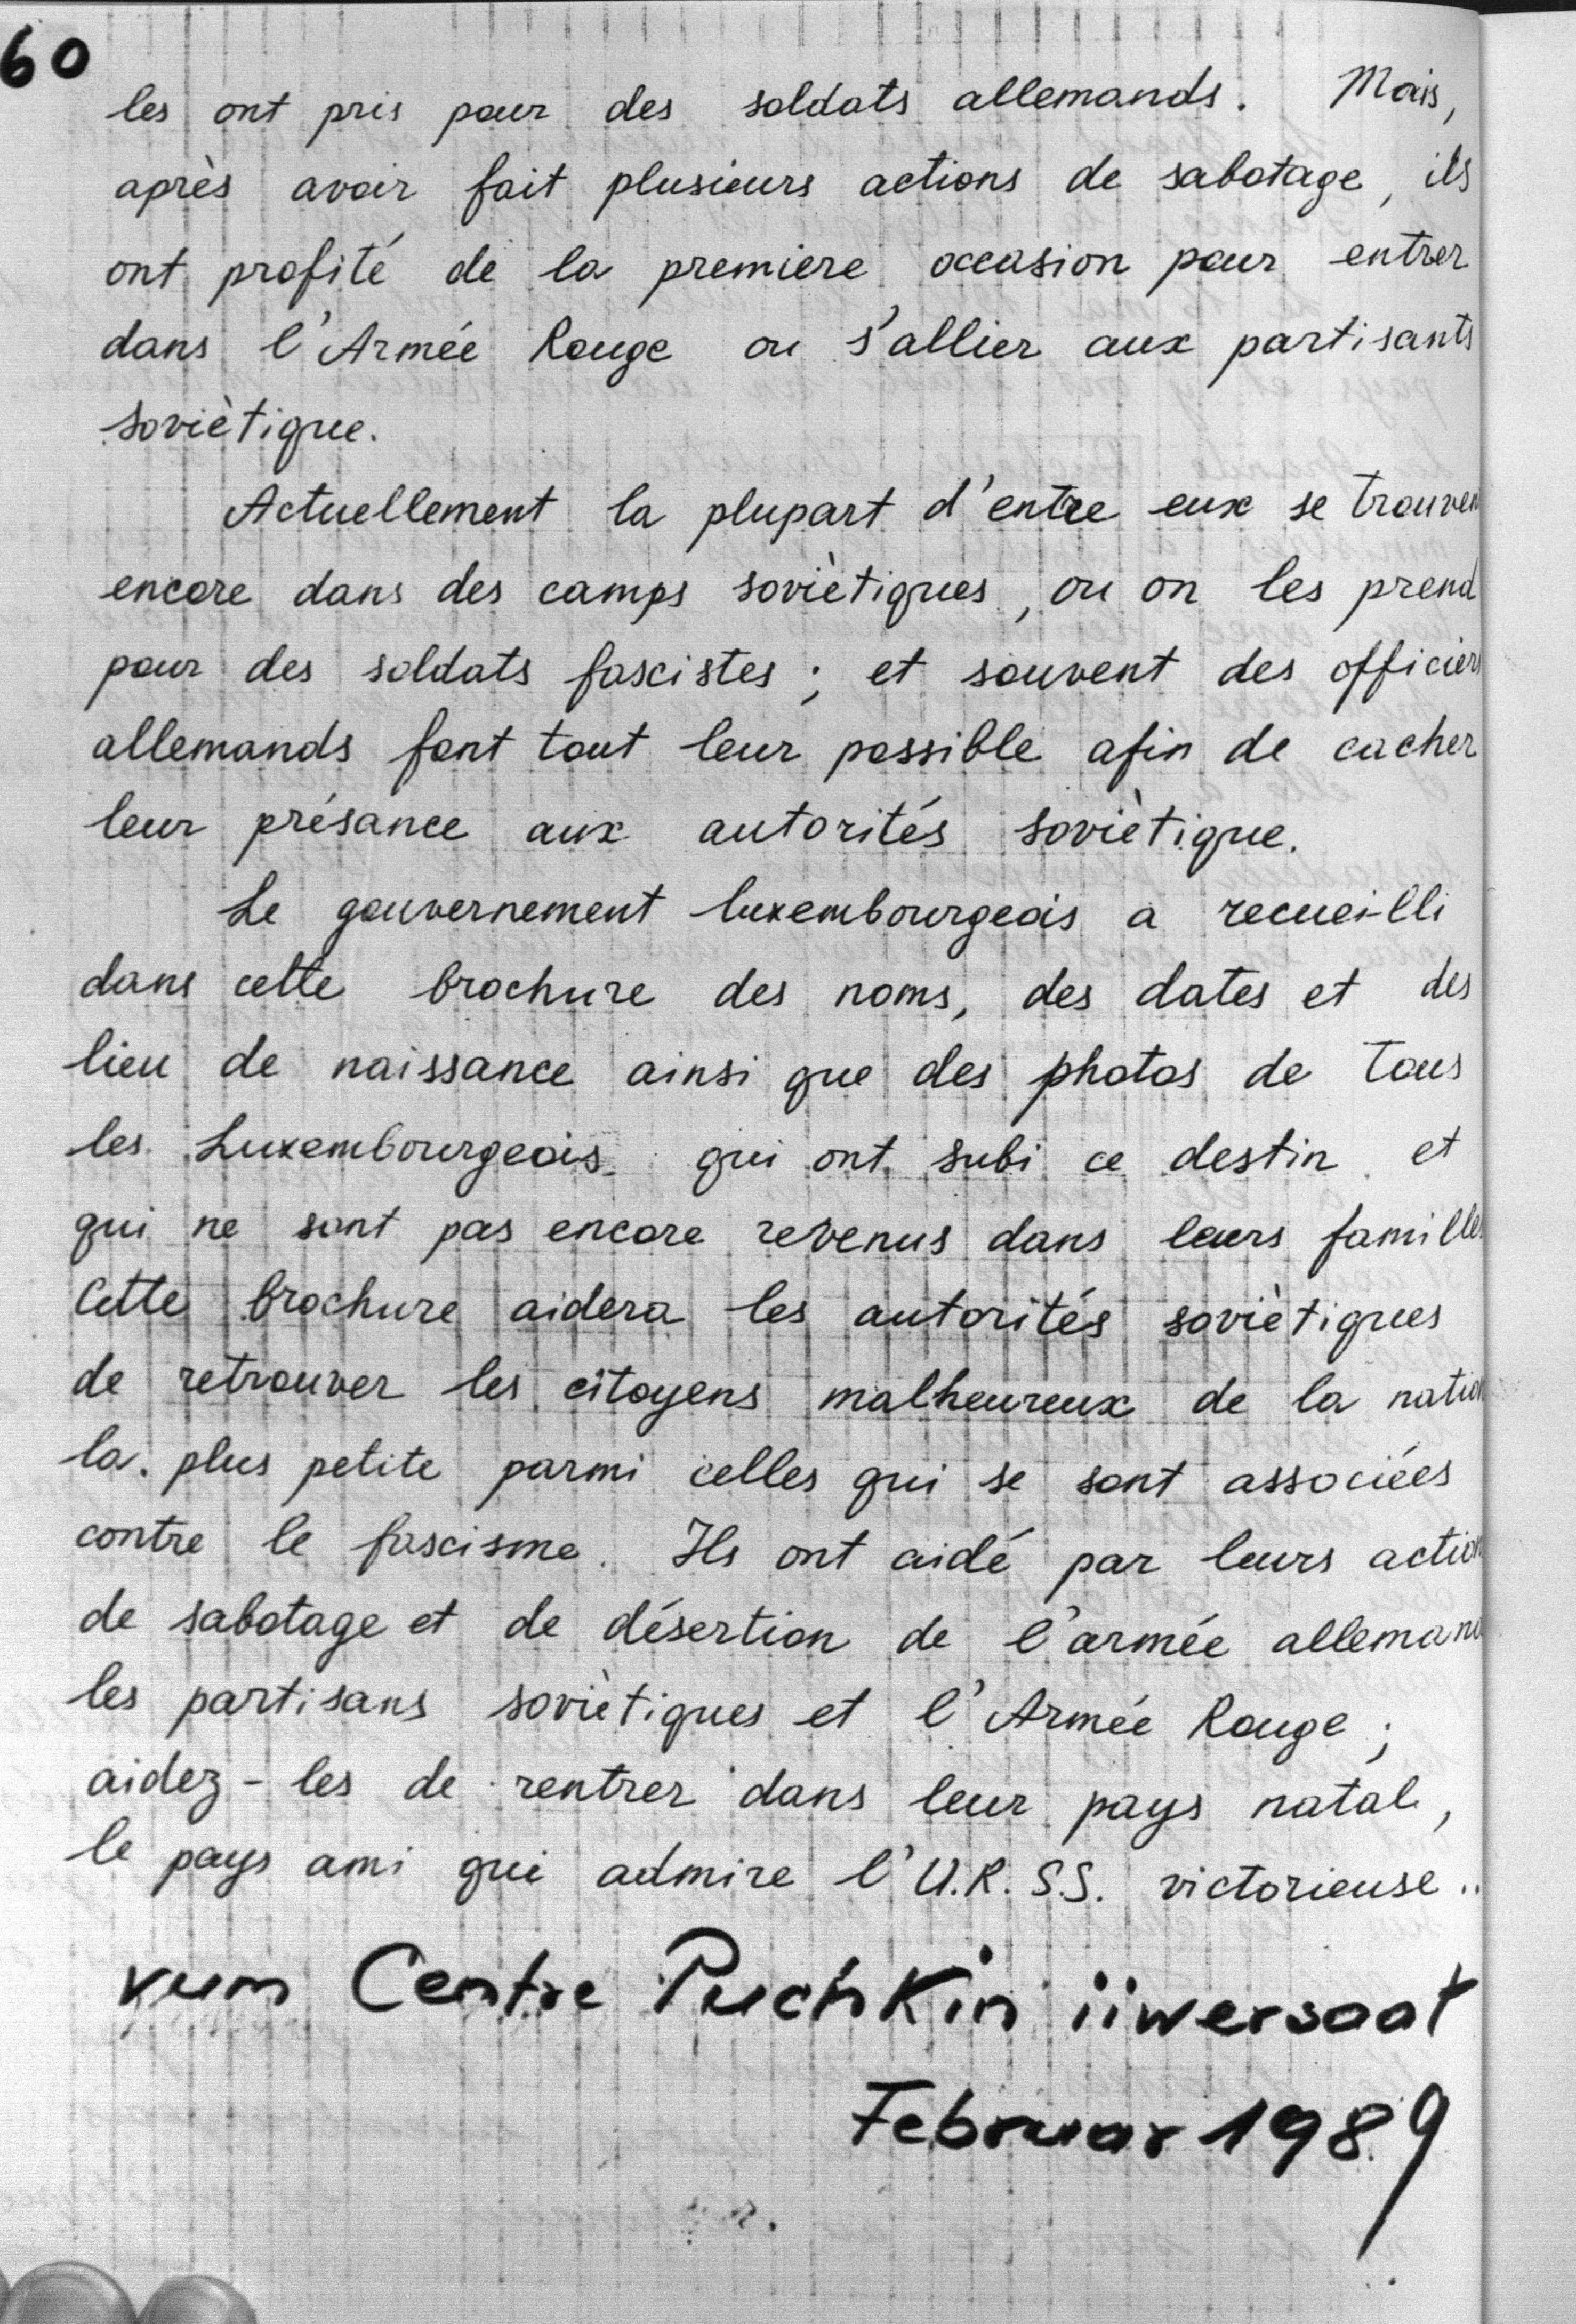 60
les ont pris pour des soldats allemands. Mais,
après avoir fait plusieurs actions de sabotage, ils
ont profité de la première occasion pour entrer
dans l'Armée Rouge ou s'allier aux partisants
soviètique.
Actuellement la plupart d'entre eux se trouven
encore dans des camps soviètiques, ou on les prend
pour des soldats fascistes; et souvent des officiers
allemands font tout leur possible afin de cacher
leur présance aux autorités soviètique.
Le gouvernement luxembourgeois a recueilli
dans cette brochure des noms, des dates et des
lieu de naissance ainsi que des photos de tous
les Luxembourgeois qui ont subi ce destin et
qui ne sont pas encore revenus dans leurs familles
Cette brochure aidera les autorités soviètiques
de retrouver les citoyens malheureux de la nation
la plus petite parmi celles qui se sont associées
contre le fascisme. Ils ont aidé par leurs action
de sabotage et de désertion de l'armée alleman
les partisans soviètiques et l'Armée Rouge;
aidez-les de rentrer dans leur pays natal,
le pays ami qui admire l'U.R.S.S. victorieuse..
vum Centre Puchkin iiwersaat
Februar 1989